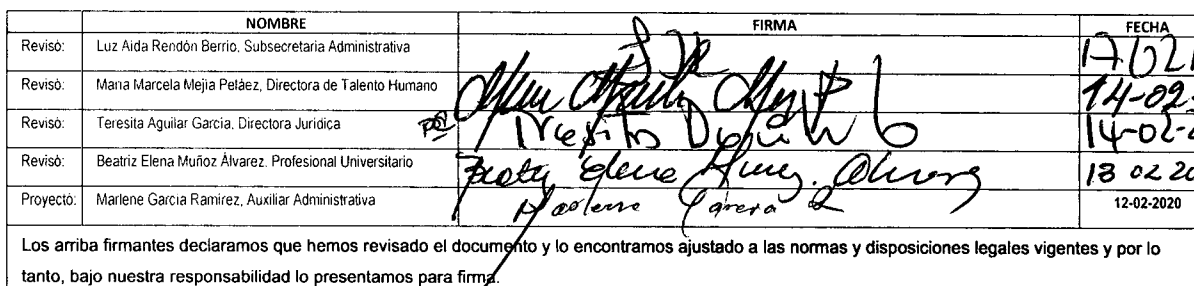 NOMBRE FIRMA FECHA
Revisó: Luz Aida Rendón Berrio, Subsecretaria Administrativa 17/02/
Revisó: Maria Marcela Mejia Peláez, Directora de Talento Humano 14-02-
Revisó: Teresita Aguilar Garcia. Directora Juridica por Teresita 14-02-2
Revisó: Beatriz Elena Muñoz Álvarez. Profesional Universitario Elena 13 02 20
Proyectó: Marlene Garcia Ramirez, Auxiliar Administrativa 12-02-2020
Los arriba firmantes declaramos que hemos revisado el documento y lo encontramos ajustado a las normas y disposiciones legales vigentes y por lo
tanto, bajo nuestra responsabilidad lo presentamos para firma.